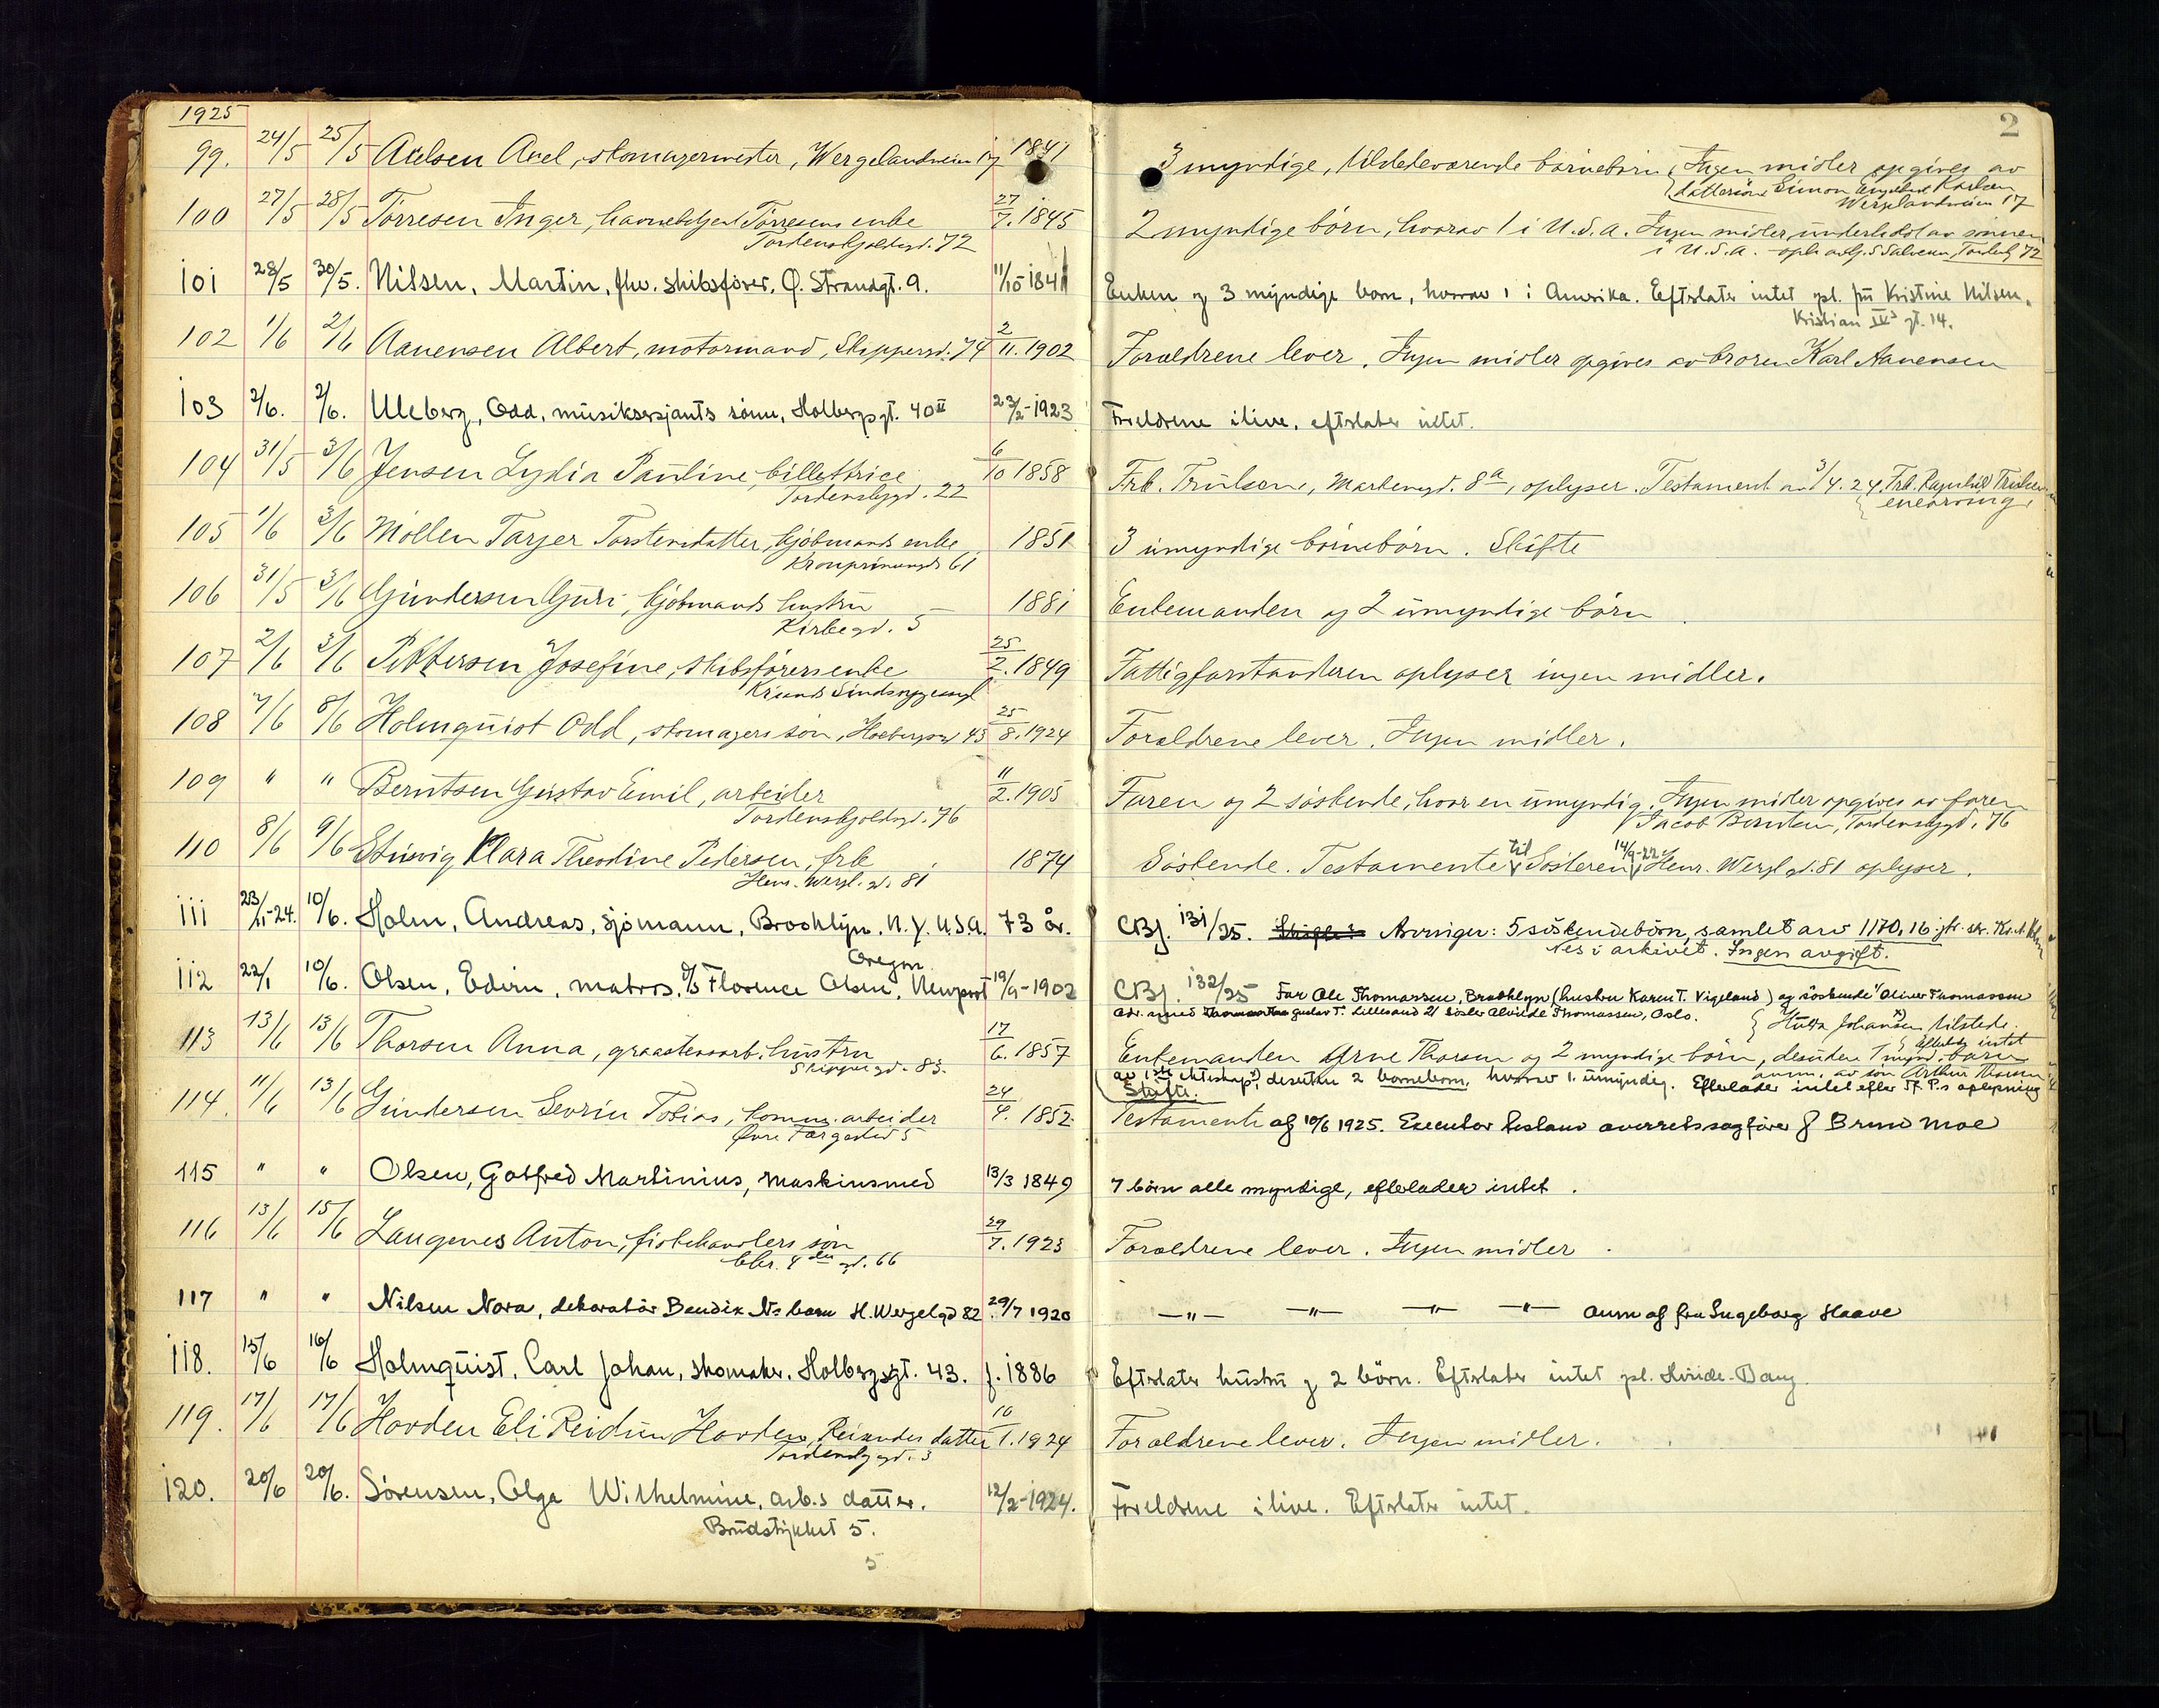 1925
2
99. 24/5 25/5 Axelsen Axel, skomagermester, Wergelandsveien 17 1841 3 myndige, tilstedeværende børnebørn. Ingen midler opgives av
dattersøn Simon Karlsen
Wergelandsveien 17
100 27/5 28/5 Tørresen Inger, Tørresens enke 27/7. 1845 2 myndige børn, hvorav 1 i U.S.A. Ingen midler, underholdt av sønnen
Tordenskjoldsgd. 72 i U.S.A.
101 28/5 30/5. Nilsen, Martin, fhv. skibsfører, Ø. Strandgt. 9. 11/10-1841 Enken og 3 myndige born, hvorav 1 i Amerika. Efterlater intet opl. frú Kristine Nilsen,
Kristian IVs gt. 14.
102 1/6 2/6 Aanensen Albert, motormand, Skippergd. 74 2/11. 1902 Forældrene lever. Ingen midler opgives av broren Karl Aanensen
103 2/6. 2/6. Uleberg, Odd, músiksersjants sønn, Holbergsgt. 40 II 23/2-1923 Foreldrene ilive, efterlater intet.
104 31/5 3/6 Jensen Lydia Pauline, billettrice 6/10 1858 Frk. Trulsen, Markensgd. 8a, oplyser. Testament av 3/4. 24. Frk. Ragnhild Trulsen
Tordenskjgd. 22 enearving.
105 1/6 3/6 Mollen Tarjer Torstensdatter, kjøbmands enke 1851 3 umyndige børnebørn. Skifte
Kronprinsensgd 61
106 31/5 3/6 Gundersen Guri, kjøbmands hustru 1881 Enkemanden og 2 umyndige børn
Kirkegd. 5
107 2/6 3/6 Pettersen Josefine, skibsførers enke 25/2. 1849 Fattigforstanderen oplyser ingen midler.
Krsands Sindssygeasyl
108 7/6 8/6 Holmquist Odd, skomagers søn, Holbergsgd 43 25/8. 1924 Forældrene lever. Ingen midler.
109 " " Berntsen Gustav Emil, arbeider 11/2. 1905 Faren og 2 søskende, hvor en umyndig. Ingen midler opgives av faren
Tordenskjoldsgd. 76 Jacob Berntsen, Tordenskjgd. 76
110 8/6 9/6 Klara Theodine Pedersen, frk 1874 Søskende. Testamente til Søsteren 14/9-22 Henr. Wergl. gd. 81 oplyser.
Henr. Wergl. gd. 81
111 23/11-24. 10/6. Holm, Andreas, sjømann, Brooklyn, N.Y. U.S.A. 73 år. CBj. 131/25. Arvinger: 5 søskendebørn, samlet arv 1170,16
i arkivet. Ingen avgift.
Oregon
112 22/1 10/6. Olsen, Edvin, matros, D/S Florence Olsen, Newport 19/9-1902 CBj. 132/25 Far Ole Thomassen, Brooklyn (hustru Karen T. Vigeland) og søskende 1/ Oliver Thomassen
Gustav T. Lillesand 2/ søster Alvilde Thomassen, Oslo.
113 13/6 13/6 Thorsen Anna, graastensarb. hustru 17/6. 1857 Enkemanden Arne Thorsen og 2 myndige børn, desuden 1 mynd. barn
Skippergd. 83. av 1ste ekteskap, desuten 2 borneborn, hvorav 1. umyndig. Efterlader intet efter Tf. P.s oplysning
Skifte.
114. 11/6 13/6 Gundersen Sevrin Tobias, komm. arbeider 24/4. 1852 Testamente af 10/6 1925. Executor testam overretssagfører J Bruun Moe
115 " " Olsen, Gotfred Martinius, maskinsmed 13/3 1849 7 børn alle myndige, efterlader intet.
116 13/6 15/6 Langenes Anton, fiskehandlers søn 29/7. 1923 Forældrene lever. Ingen midler.
Chr. 4des gd. 66
117 " " Nilsen Nora, dekoratør Bendix Ns barn H. Wergelgd 82 29/7 1920 —"— —"— —"— —"— anm af fru Ingeborg Haave
118. 15/6 16/6 Holmquist, Carl Johan, skomaker, Holbergsgt. 43. f. 1886 Efterlater hustrú og 2 børn. Efterlater intet
119. 17/6 17/6 Hovden Eli Reidun Hovden, Reisendes datter 10/1. 1924 Forældrene lever. Ingen midler.
Tordenskjgd. 3
120. 20/6 20/6. Sørensen, Olga Wilhelmine, arb.s datter. 12/2-1924. Foreldrene ilive. Efterlater intet.
Brúdstykket 5.
5